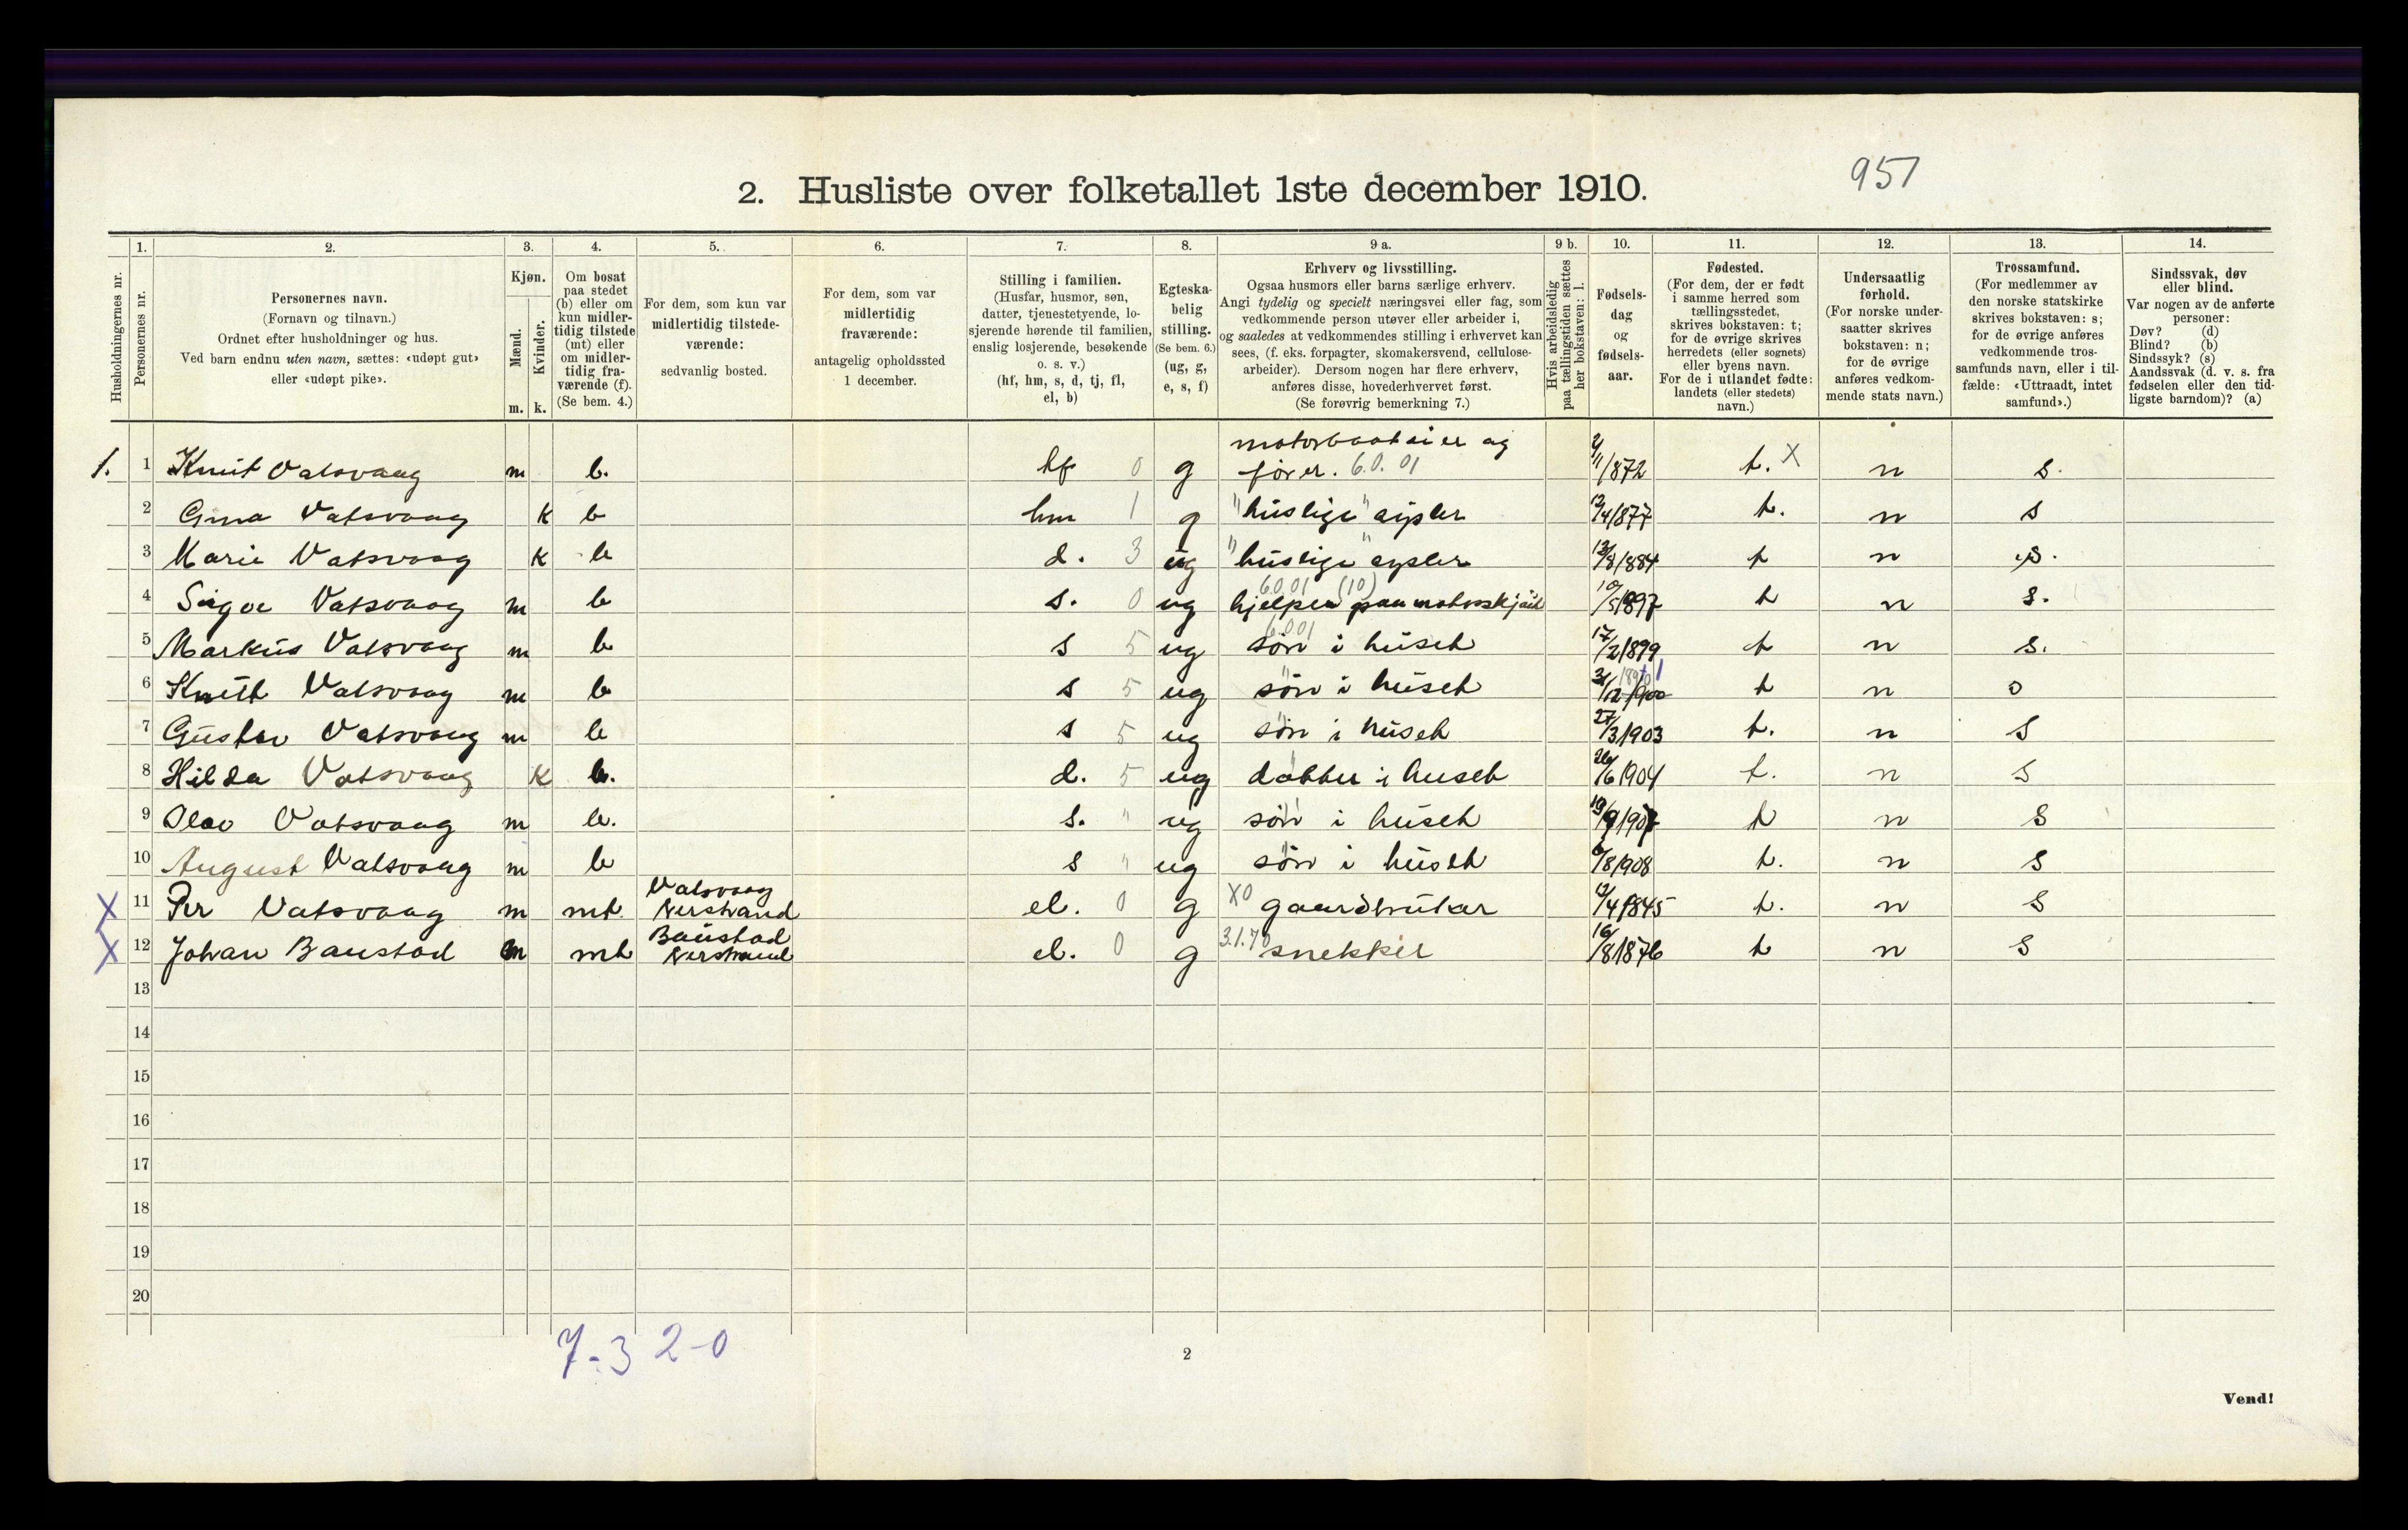 951
2. Husliste over folketallet 1ste december 1910.
Husholdningernes nr.
1.
Personernes nr.
2.
Personernes navn.
(Fornavn og tilnavn.)
Ordnet efter husholdninger og hus.
Ved barn endnu uten navn, sættes: «udøpt gut»
eller «udøpt pike».
3.
Kjøn.
Mænd.
Kvinder.
m. k.
4.
Om bosat
paa stedet
(b) eller om
kun midler-
tidig tilstede
(mt) eller
om midler-
tidig fra-
værende (f).
(Se bem. 4.)
5.
For dem, som kun var
midlertidig tilstede-
værende:
sedvanlig bosted.
6.
For dem, som var
midlertidig
fraværende:
antagelig opholdssted
1 december.
7.
Stilling i familien.
(Husfar, husmor, søn,
datter, tjenestetyende, lo-
sjerende hørende til familien,
enslig losjerende, besøkende
o. s. v.)
(hf, hm, s, d, tj, fl,
el, b)
8.
Egteska-
belig
stilling.
(Se bem. 6.)
(ug, g,
e, s, f)
9 a.
Erhverv og livsstilling.
Ogsaa husmors eller barns særlige erhverv.
Angi tydelig og specielt næringsvei eller fag, som
vedkommende person utøver eller arbeider i,
og saaledes at vedkommendes stilling i erhvervet kan
sees, (f. eks. forpagter, skomakersvend, cellulose-
arbeider). Dersom nogen har flere erhverv,
anføres disse, hovederhvervet først.
(Se forøvrig bemerkning 7.)
9 b.
Hvis arbeidsledig
paa tællingstiden sættes
her bokstaven: l.
10.
Fødsels-
dag
og
fødsels-
aar.
11.
Fødested.
(For dem, der er født
i samme herred som
tællingsstedet,
skrives bokstaven: t;
for de øvrige skrives
herredets (eller sognets)
eller byens navn.
For de i utlandet fødte:
landets (eller stedets)
navn.)
12.
Undersaatlig
forhold.
(For norske under-
saatter skrives
bokstaven: n;
for de øvrige
anføres vedkom-
mende stats navn.)
13.
Trossamfund.
(For medlemmer av
den norske statskirke
skrives bokstaven: s;
for de øvrige anføres
vedkommende tros-
samfunds navn, eller i til-
fælde: «Uttraadt, intet
samfund».)
14.
Sindssvak, døv
eller blind.
Var nogen av de anførte
personer:
Døv? (d)
Blind? (b)
Sindssyk? (s)
Aandssvak (d. v. s. fra
fødselen eller den tid-
ligste barndom)? (a)
motorbaateier og
1. 1 Knut Vatsvaag m b. hf 0 g fører. 6.0.01 2/11/872 t. X n s.
2 Gina Vatsvaag k b hm 1 g "huslige" sysler 12/4/877 t. n s
3 Marie Vatsvaag k b d. 3 ug "huslige" sysler 12/8/884 t n s.
6001 (10)
4 Sigve Vatsvaag m b s. 0 ug hjelper paa motorskjøit 10/5/897 t n s.
6001
5 Markus Vatsvaag m b s 5 ug søn i huset 17/2/899 t n s.
6 Knut Vatsvaag m b s 5 ug søn i huset 31/12/900 t n s
7 Gustav Vatsvaag m b s 5 ug søn i huset 27/3/903 t. n s
8 Hilda Vatsvaag k b. d. 5 ug datter i huset 26/6/904 t. n s
9 Olav Vatsvaag m b. s. " ug søn i huset 19/9/907 t n s
10 August Vatsvaag m b s " ug søn i huset 6/8/908 t. n s
Vatsvaag
X 11 Per Vatsvaag m mt. Nerstrand el. 0 g X0 gaardbruker 12/4/1845 t. n s
Baustad
X 12 Johan Baustad m mt Nerstrand el. 0 g 3.1.70 snekker 16/8/1876 t n s
13
14
15
16
17
18
19
20
7-3 2-0
2
Vend!